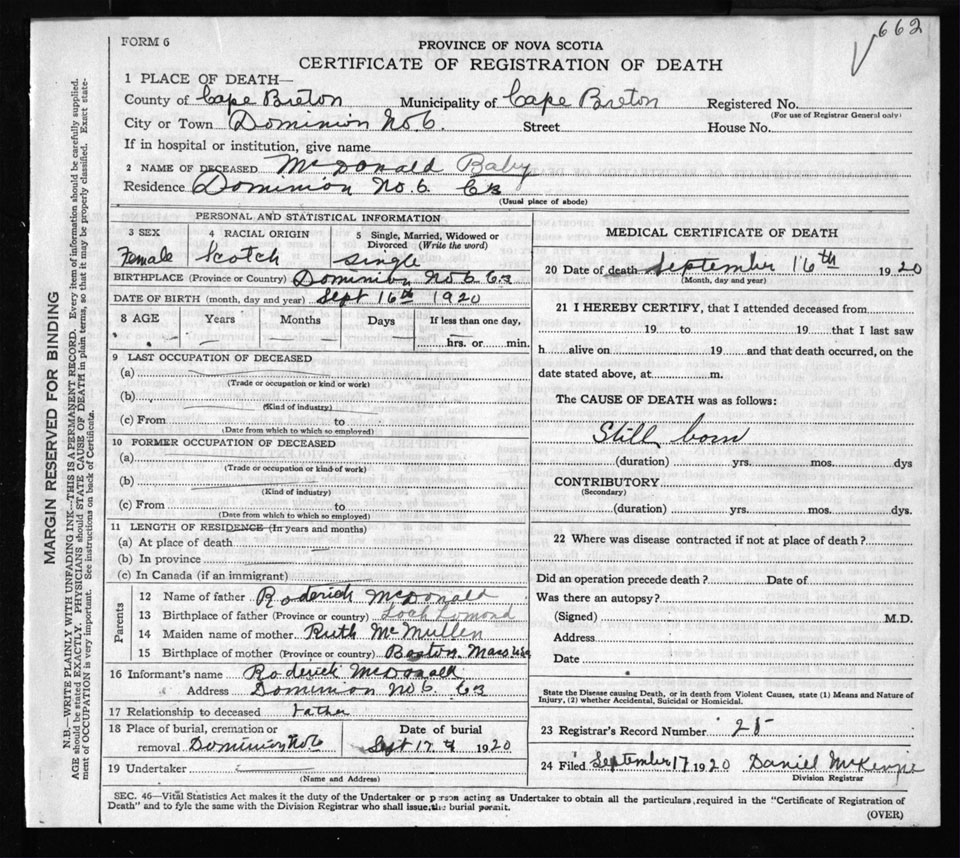 662
FORM 6
PROVINCE OF NOVA SCOTIA
CERTIFICATE OF REGISTRATION OF DEATH
1 PLACE OF DEATH—
County of Cape Breton Municipality of Cape Breton Registered No.
(For use of Registrar General only)
City or Town Dominion No. 6. Street House No.
If in hospital or institution, give name
2 NAME OF DECEASED McDonald Baby
Residence Dominion No. 6. CB
(Usual place of abode)
PERSONAL AND STATISTICAL INFORMATION
3 SEX 4 RACIAL ORIGIN 5 Single, Married, Widowed or Divorced (Write the word)
Female Scotch Single
BIRTHPLACE (Province or Country) Dominion No 6. CB
DATE OF BIRTH (month, day and year) Sept 16th 1920
8 AGE Years Months Days If less than one day,
hrs. or min.
9 LAST OCCUPATION OF DECEASED
(a)
(Trade or occupation or kind or work)
(b)
(Kind of industry)
(c) From to
(Date from which to which so employed)
10 FORMER OCCUPATION OF DECEASED
(a)
(Trade or occupation or kind of work)
(b)
(Kind of industry)
(c) From to
(Date from which to which so employed)
11 LENGTH OF RESIDENCE (In years and months)
(a) At place of death
(b) In province
(c) In Canada (if an immigrant)
Parents
12 Name of father Roderick McDonald
13 Birthplace of father (Province or country) Loch Lomond
14 Maiden name of mother Ruth McMullen
15 Birthplace of mother (Province or country) Boston Mass USA
16 Informant's name Roderick McDonald
Address Dominion No 6. CB
17 Relationship to deceased Father
18 Place of burial, cremation or removal Dominion No 6 Date of burial
Sept 17th 1920
19 Undertaker
(Name and Address)
MEDICAL CERTIFICATE OF DEATH
20 Date of death September 16th 1920
(Month, day and year)
21 I HEREBY CERTIFY, that I attended deceased from
19 to 19 that I last saw
h alive on 19 and that death occurred, on the
date stated above, at m.
The CAUSE OF DEATH was as follows:
Still born
(duration) yrs. mos. dys
CONTRIBUTORY
(Secondary)
(duration) yrs. mos. dys.
22 Where was disease contracted if not at place of death?
Did an operation precede death? Date of
Was there an autopsy?
(Signed) M.D.
Address
Date
State the Disease causing Death, or in death from Violent Causes, state (1) Means and Nature of
Injury, (2) whether Accidental, Suicidal or Homicidal.
23 Registrar's Record Number 25
24 Filed September 17 1920 Daniel McKenzie
Division Registrar
SEC. 46—Vital Statistics Act makes it the duty of the Undertaker or person acting as Undertaker to obtain all the particulars required in the "Certificate of Registration of
Death" and to fyle the same with the Division Registrar who shall issue the burial permit.
(OVER)
MARGIN RESERVED FOR BINDING
N.B.—WRITE PLAINLY WITH UNFADING INK—THIS IS A PERMANENT RECORD. Every item of information should be carefully supplied.
AGE should be stated EXACTLY. PHYSICIANS should STATE CAUSE OF DEATH in plain terms, so that it may be properly classified. Exact state-
ment of OCCUPATION is very important. See instructions on back of Certificate.